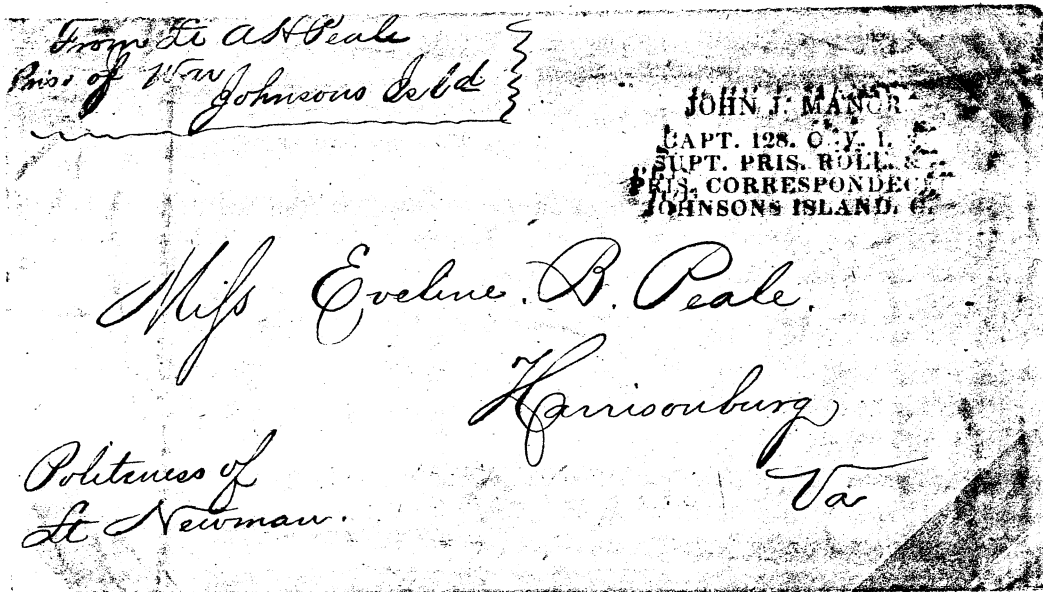 From Lt A H Peale
Pris. of War
Johnsons Isld
JOHN J. MANOR
CAPT. 128. O. V. I.
SUPT. PRIS. ROLL. &
PRIS. CORRESPONDEC
JOHNSONS ISLAND. O.
Miss Eveline. B. Peale.
Harrisonburg
Va
Politeness of
Lt Newman.